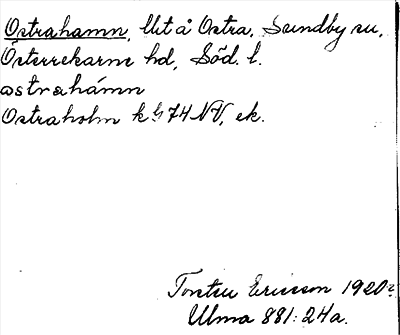 Ostrahamn, Ut å Ostra, Sundby sn,
Österrekarne hd, Söd. l.
ostrahámn
Ostraholm kbl 74 NV, ek.
Torsten Ericsson 1920?
Ulma 881:24a.